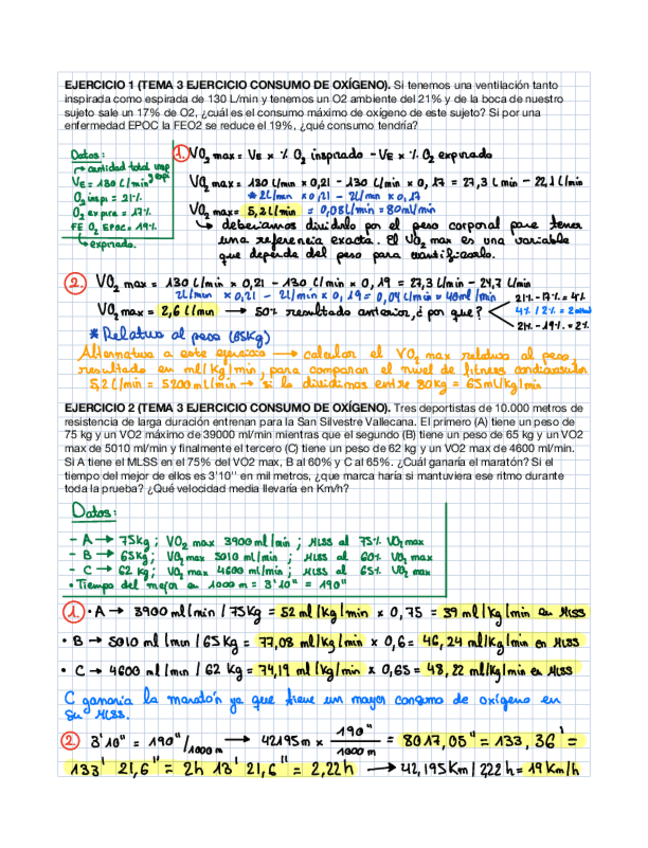 EJERCICIO 1 (TEMA 3 EJERCICIO CONSUMO DE OXÍGENO). Si tenemos una ventilación tanto
inspirada como espirada de 130 L/min y tenemos un O2 ambiente del 21% y de la boca de nuestro
sujeto sale un 17% de O2, ¿cuál es el consumo máximo de oxígeno de este sujeto? Si por una
enfermedad EPOC la FEO2 se reduce el 19%, ¿qué consumo tendría?
Datos:
cantidad total insp
y espi
VE = 130 L/min
O2 inspi = 21%
O2 expira = 17%
FE O2 EPOC = 19%
expirado.
1. VO2 max = VE x % O2 inspirado - VE x % O2 expirado
VO2 max = 130 L/min x 0,21 - 130 L/min x 0,17 = 27,3 L min - 22,1 L/min
* 2L/min x 0,21 - 2L/min x 0,17
VO2 max = 5,2 L/min = 0,08 L/min = 80 ml/min
deberíamos dividirlo por el peso corporal para tener
una referencia exacta. El VO2 max es una variable
que depende del peso para cuantificarlo.
2. VO2 max = 130 L/min x 0,21 - 130 L/min x 0,19 = 27,3 L/min - 24,7 L/min
2L/min x 0,21 - 2L/min x 0,19 = 0,04 L/min = 40 ml/min
VO2 max = 2,6 L/min → 50% resultado anterior, ¿por que?
21% - 17% = 4%
4% / 2% =
21% - 19% = 2%
* Relativo al peso (65Kg)
Alternativa a este ejercicio → calcular el VO2 max relativo al peso,
resultado en ml/Kg/min, para comparar el nivel de fitness cardiovascular
5,2 L/min = 5200 ml/min → si lo dividimos entre 80 Kg = 65 ml/Kg/min
EJERCICIO 2 (TEMA 3 EJERCICIO CONSUMO DE OXÍGENO). Tres deportistas de 10.000 metros de
resistencia de larga duración entrenan para la San Silvestre Vallecana. El primero (A) tiene un peso de
75 kg y un VO2 máximo de 39000 ml/min mientras que el segundo (B) tiene un peso de 65 kg y un VO2
max de 5010 ml/min y finalmente el tercero (C) tiene un peso de 62 kg y un VO2 max de 4600 ml/min.
Si A tiene el MLSS en el 75% del VO2 max, B al 60% y C al 65%. ¿Cuál ganaría el maratón? Si el
tiempo del mejor de ellos es 3'10'' en mil metros, ¿que marca haría si mantuviera ese ritmo durante
toda la prueba? ¿Qué velocidad media llevaría en Km/h?
Datos:
- A → 75Kg ; VO2 max 3900 ml/min ; MLSS al 75% VO2 max
- B → 65Kg ; VO2 max 5010 ml/min ; MLSS al 60% VO2 max
- C → 62 Kg ; VO2 max 4600 ml/min ; MLSS al 65% VO2 max
• Tiempo del mejor en 1000 m = 3'10" = 190"
1. • A → 3900 ml/min / 75Kg = 52 ml/Kg/min x 0,75 = 39 ml/Kg/min en MLSS
• B → 5010 ml/min / 65 Kg = 77,08 ml/Kg/min x 0,6 = 46,24 ml/Kg/min en MLSS
• C → 4600 ml/min / 62 Kg = 74,19 ml/Kg/min x 0,65 = 48,22 ml/Kg/min en MLSS
C ganaría la maratón ya que tiene un mayor consumo de oxígeno en
su MLSS.
2. 3'10" = 190"/1000 m → 42195 m x 190" / 1000 m = 8017,05" = 133,36' =
133' 21,6" = 2h 13' 21,6" = 2,22 h → 42,195 Km / 2,22 h = 19 Km/h